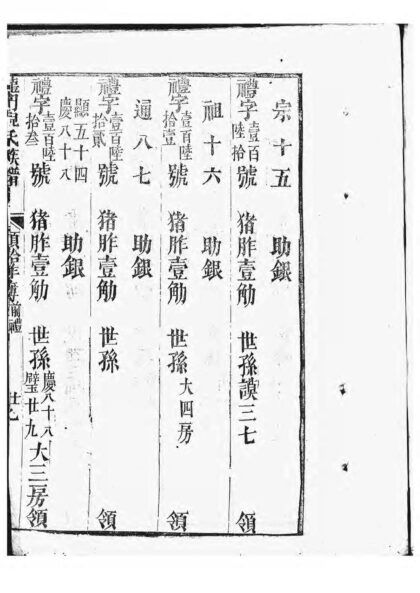 宗十五　助銀
禮字壹百陸拾號　猪胙壹觔　世孫謨三七　領
祖十六　助銀
禮字壹百陸拾壹號　猪胙壹觔　世孫大四房　領
通八七　助銀
禮字壹百陸拾貳號　猪胙壹觔　世孫　領
顯五十四慶八十八　助銀
禮字壹百陸拾叁號　猪胙壹觔　世孫慶八十八璧廿九大三房領
氏族譜　領胙　禮　廿九